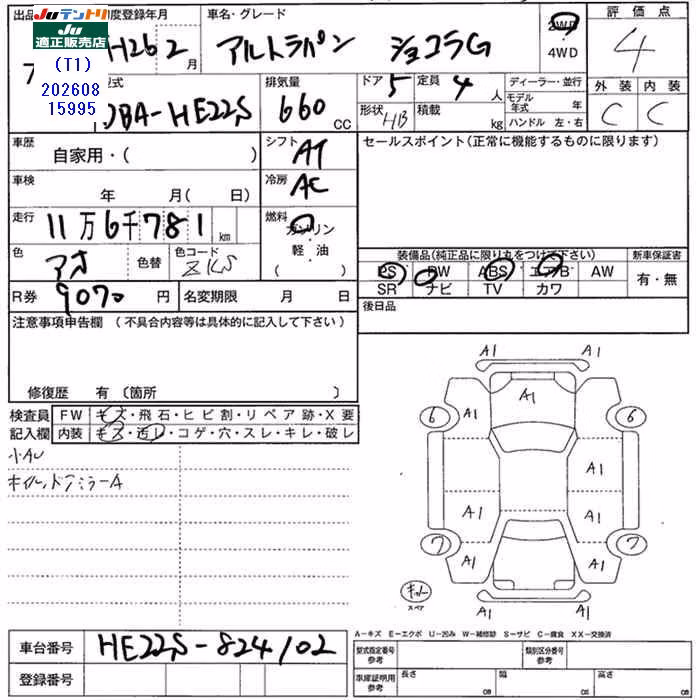 出品
JUテントリ
JU適正販売店
(T1)
202608
15995
度登録年月 車名・グレード 評価点
H26 2 月 アルトラパン ショコラG 2WD 4WD 4
型式 排気量 ドア 5 定員 4 人 ディーラー・並行 外装 内装
DBA-HE22S 660 CC 形状 HB 積載 kg モデル年式 年 C C
ハンドル 左・右
車歴 自家用・( ) シフト AT セールスポイント(正常に機能するものに限ります)
車検 年 月( 日) 冷房 AC
走行 11万6千781 km 燃料 ガソリン・軽油 ( )
色 アオ 色替 色コード ZKS 装備品(純正品に限り丸をつけて下さい) 新車保証書
PS PW ABS エアB AW 有・無
SR ナビ TV カワ
R券 9070 円 名変期限 月 日 後日品
注意事項申告欄 (不具合内容等は具体的に記入して下さい)
修復歴 有〔箇所 〕
検査員 FW キズ・飛石・ヒビ割・リペア跡・X要
記入欄 内装 キズ・汚レ・コゲ・穴・スレ・キレ・破レ
小AU
A1 A1
6 A1 A1 A1 6
A1
A1 A1
7 A1 A1 7
スペア
A-キズ E-エクボ U-凹み W-補修跡 S-サビ C-腐食 XX-交換済
車台番号 HE22S-824102
型式指定番号 参考 類別区分番号 参考
登録番号
車庫証明用 参考 長さ cm 幅 cm 高さ cm